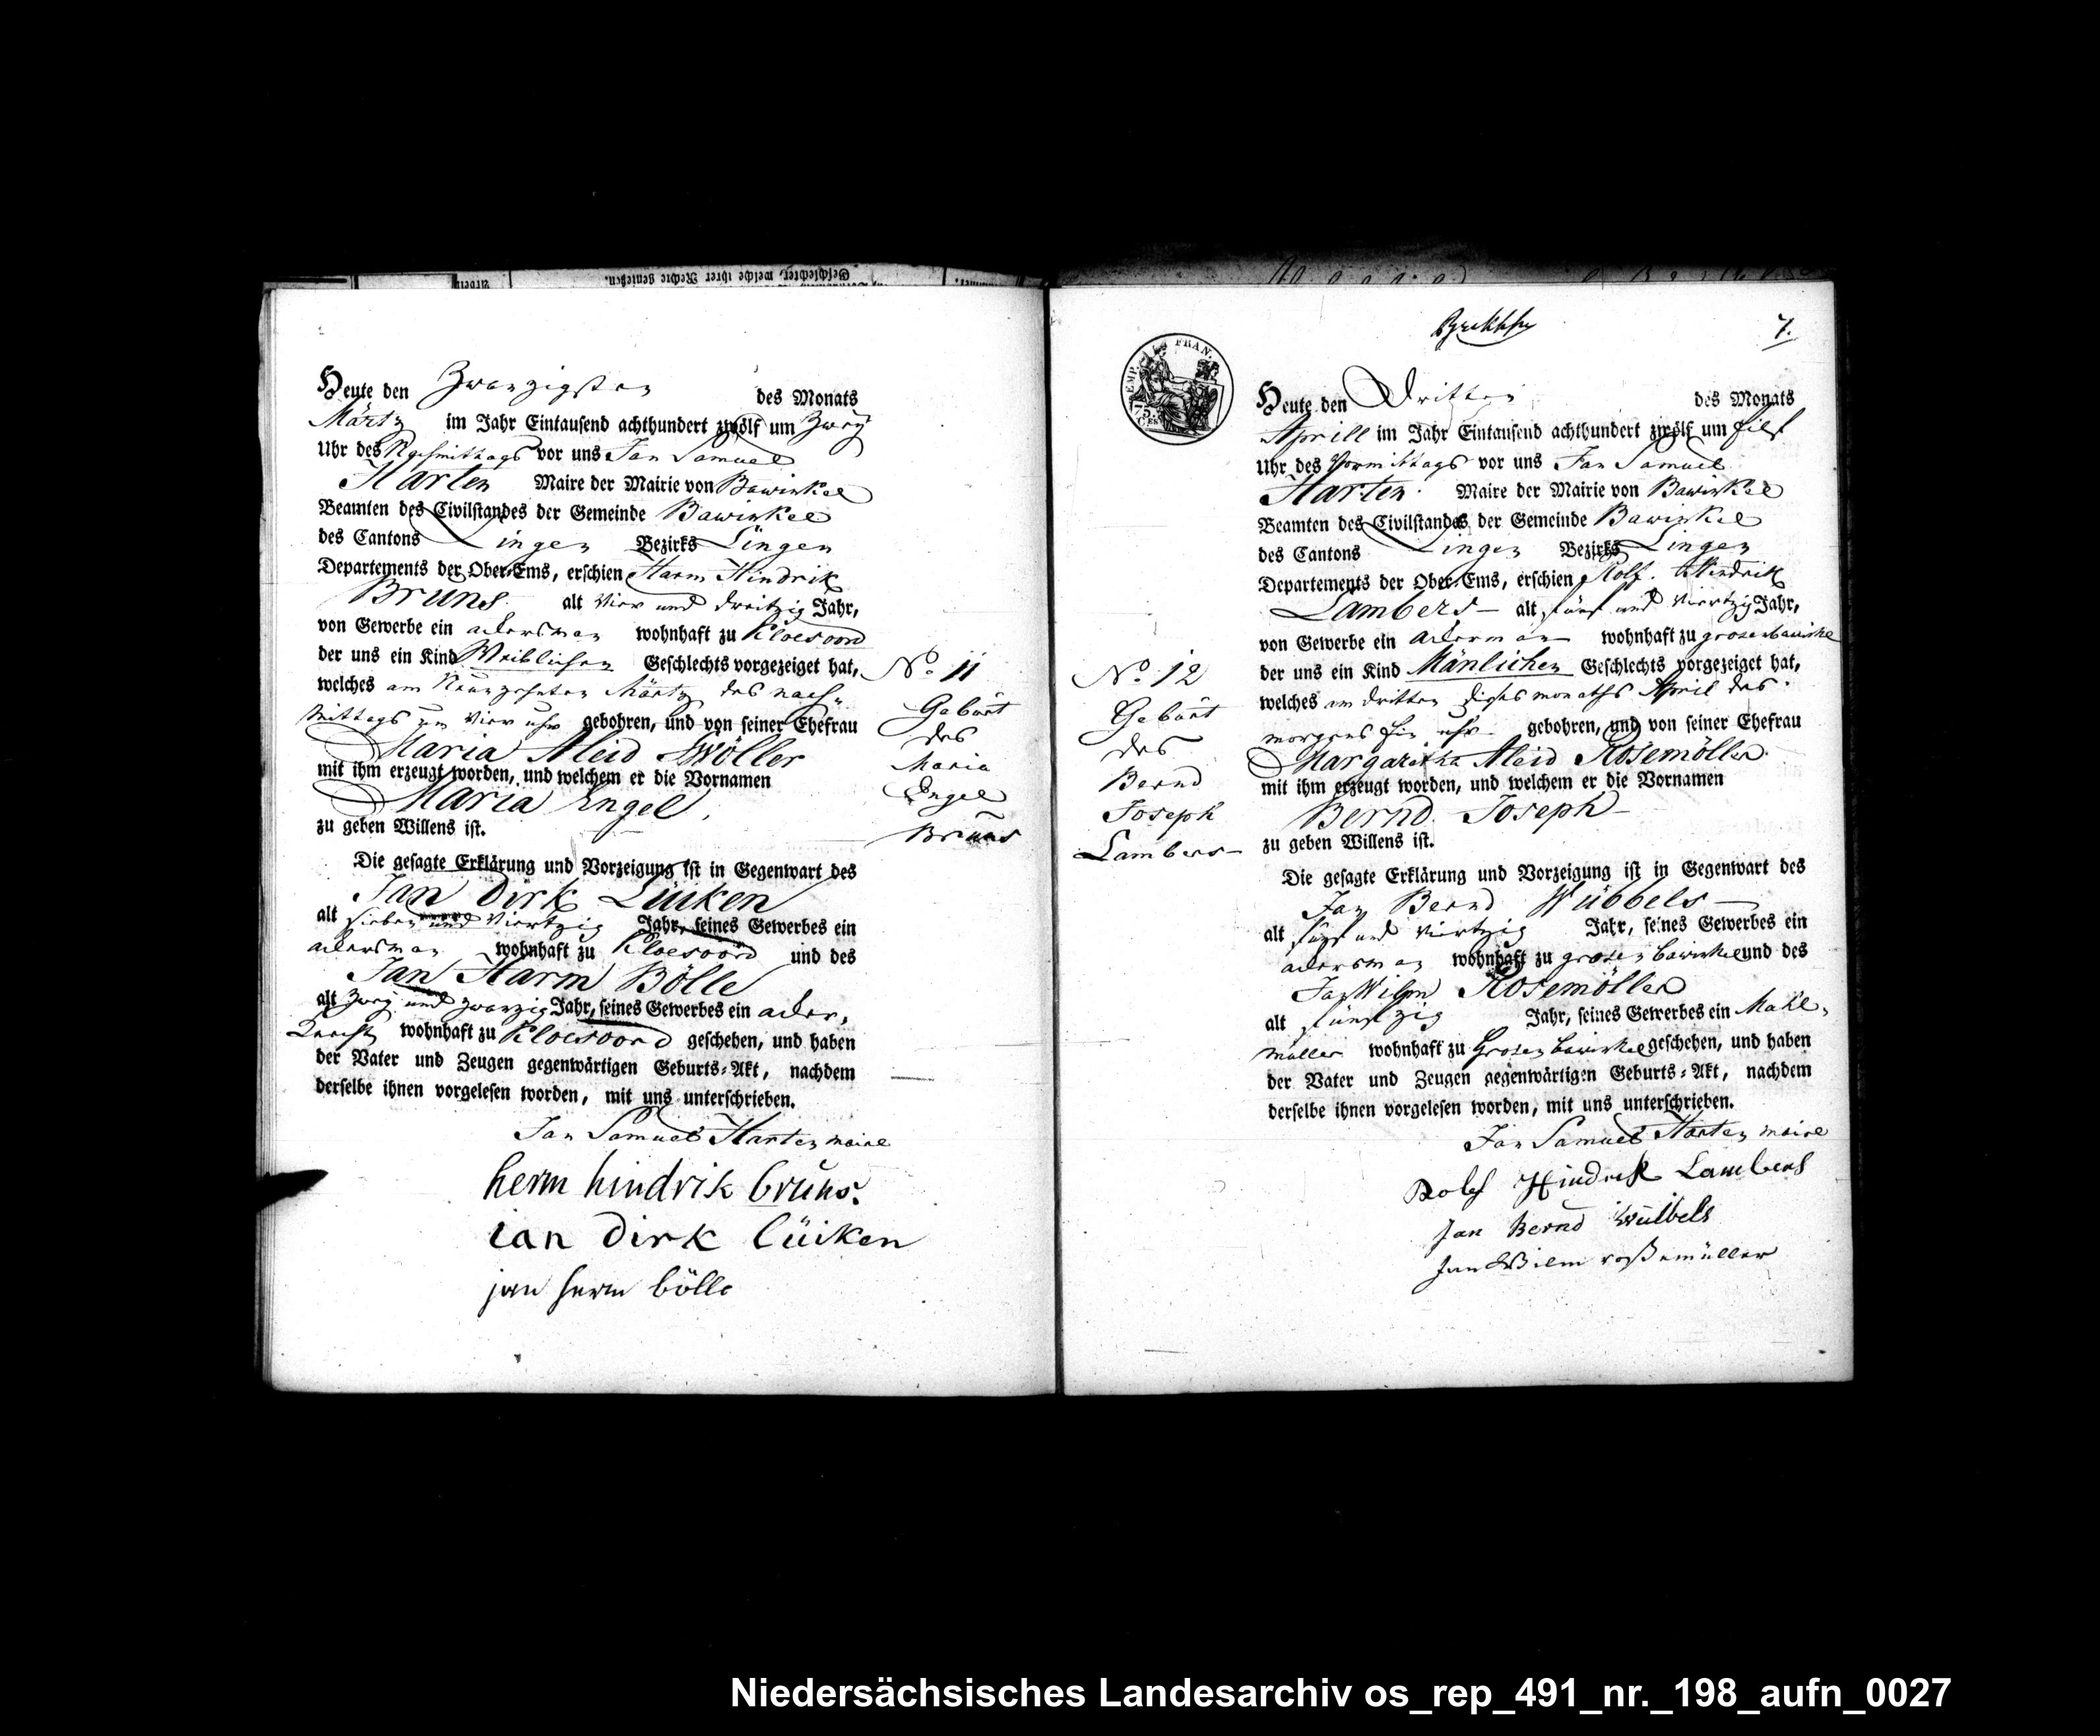 Heute den Zwanzigsten des Monats
Märtz im Jahr Eintausend achthundert zwölf um Zwey
Uhr des Nachmittags vor uns Jan Samuel
Harten Maire der Mairie von Bawinkel
Beamten des Civilstandes der Gemeinde Bawinkel
des Cantons Lingen Bezirks Lingen
Departements der Ober-Ems, erschien Harm Hindrik
Bruns alt Vier und dreitzig Jahr,
von Gewerbe ein ackersman wohnhaft zu Kloesoord
der uns ein Kind Weiblichen Geschlechts vorgezeiget hat,
welches am Neunzehnten Märtz des nach-
Mittags um Vier uhr gebohren, und von seiner Ehefrau
Maria Aleid Möller
mit ihm erzeugt worden, und welchem er die Vornamen
Maria Engel
zu geben Willens ist.
Die gesagte Erklärung und Vorzeigung ist in Gegenwart des
Jan Dirk Lüiken
alt sieben und Viertzig Jahr, seines Gewerbes ein
ackersman wohnhaft zu Kloesoord und des
Jan Harm Bölle
alt Zwey und zwanzig Jahr, seines Gewerbes ein acker,
Knecht wohnhaft zu Kloesoord geschehen, und haben
der Vater und Zeugen gegenwärtigen Geburts-Akt, nachdem
derselbe ihnen vorgelesen worden, mit uns unterschrieben.
Jan Samuel Harten maire
herm hindrik bruns.
ian Dirk lüiken
jan herm bölle
No 11
Geburt
des
Maria
Engel
Bruns
7.
EMP. FRAN.
75.
CES
Heute den Dritten des Monats
Aprill im Jahr Eintausend achthundert zwölf um Eilf
Uhr des Vormittags vor uns Jan Samuel
Harten Maire der Mairie von Bawinkel
Beamten des Civilstandes der Gemeinde Bawinkel
des Cantons Lingen Bezirks Lingen
Departements der Ober-Ems, erschien Rolf Hindrik
Lambers alt fünf und Viertzig Jahr,
von Gewerbe ein ackerman wohnhaft zu grosenbawinkel
der uns ein Kind Mänlichen Geschlechts vorgezeiget hat,
welches am dritten dieses monaths April des
morgens Ein uhr gebohren, und von seiner Ehefrau
Margaretha Aleid Rosemöller
mit ihm erzeugt worden, und welchem er die Vornamen
Bernd Joseph
zu geben Willens ist.
Die gesagte Erklärung und Vorzeigung ist in Gegenwart des
Jan Bernd Wübbels
alt fünf und Viertzig Jahr, seines Gewerbes ein
ackersman wohnhaft zu grosen bawinkel und des
Jan Wilm Rosemöller
alt fünfzig Jahr, seines Gewerbes ein Mahl,
müller wohnhaft zu Grosen bawinkel geschehen, und haben
der Vater und Zeugen gegenwärtigen Geburts-Akt, nachdem
derselbe ihnen vorgelesen worden, mit uns unterschrieben.
Jan Samuel Harten maire
Rolf Hindrik Lambers
Jan Bernd Wülbels
Jan Wilm roßemüller
No 12
Geburt
des
Bernd
Joseph
Lambers
Niedersächsisches Landesarchiv os_rep_491_nr._198_aufn_0027